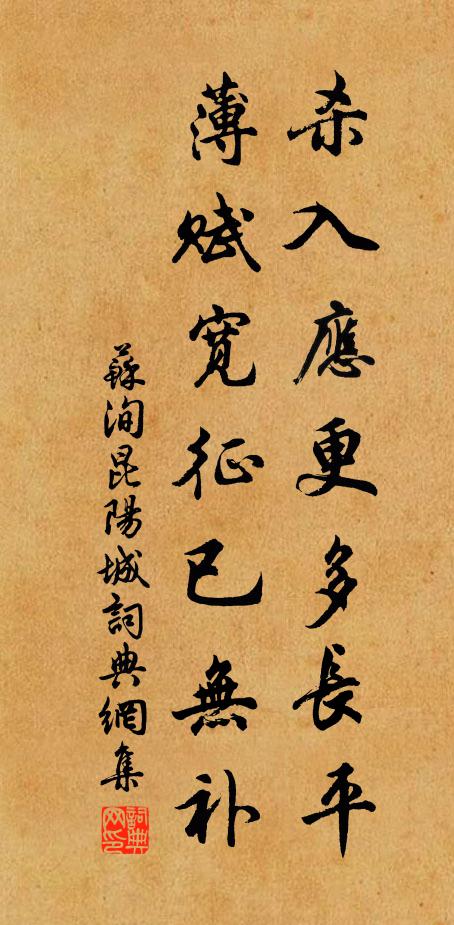 杀入應更多長平
薄赋宽征已無补
蘇洵昆陽城詞典網集
詞典网印